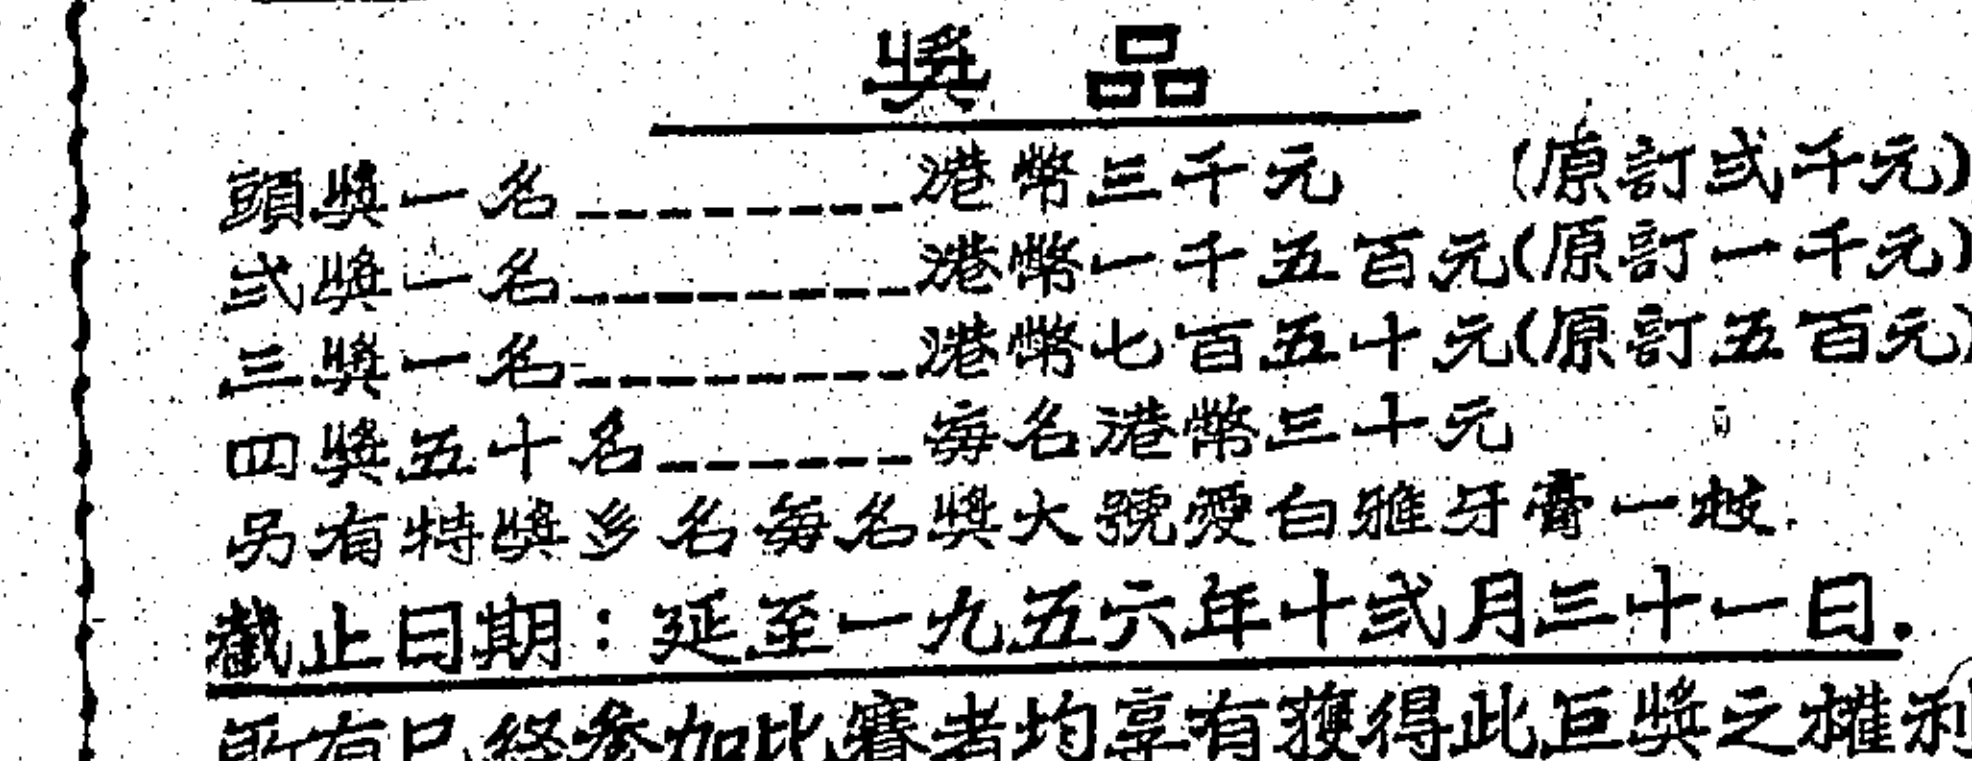 獎品
頭獎一名---------港幣三千元 (原訂弍千元)
弍獎一名---------港幣一千五百元(原訂一千元)
三獎一名---------港幣七百五十元(原訂五百元)
四獎五十名-------每名港幣三十元
另有特獎多名每名獎大號愛白雅牙膏一枝.
截止日期:延至一九五六年十弍月三十一日.
所有已經參加比賽者均享有獲得此巨獎之權利